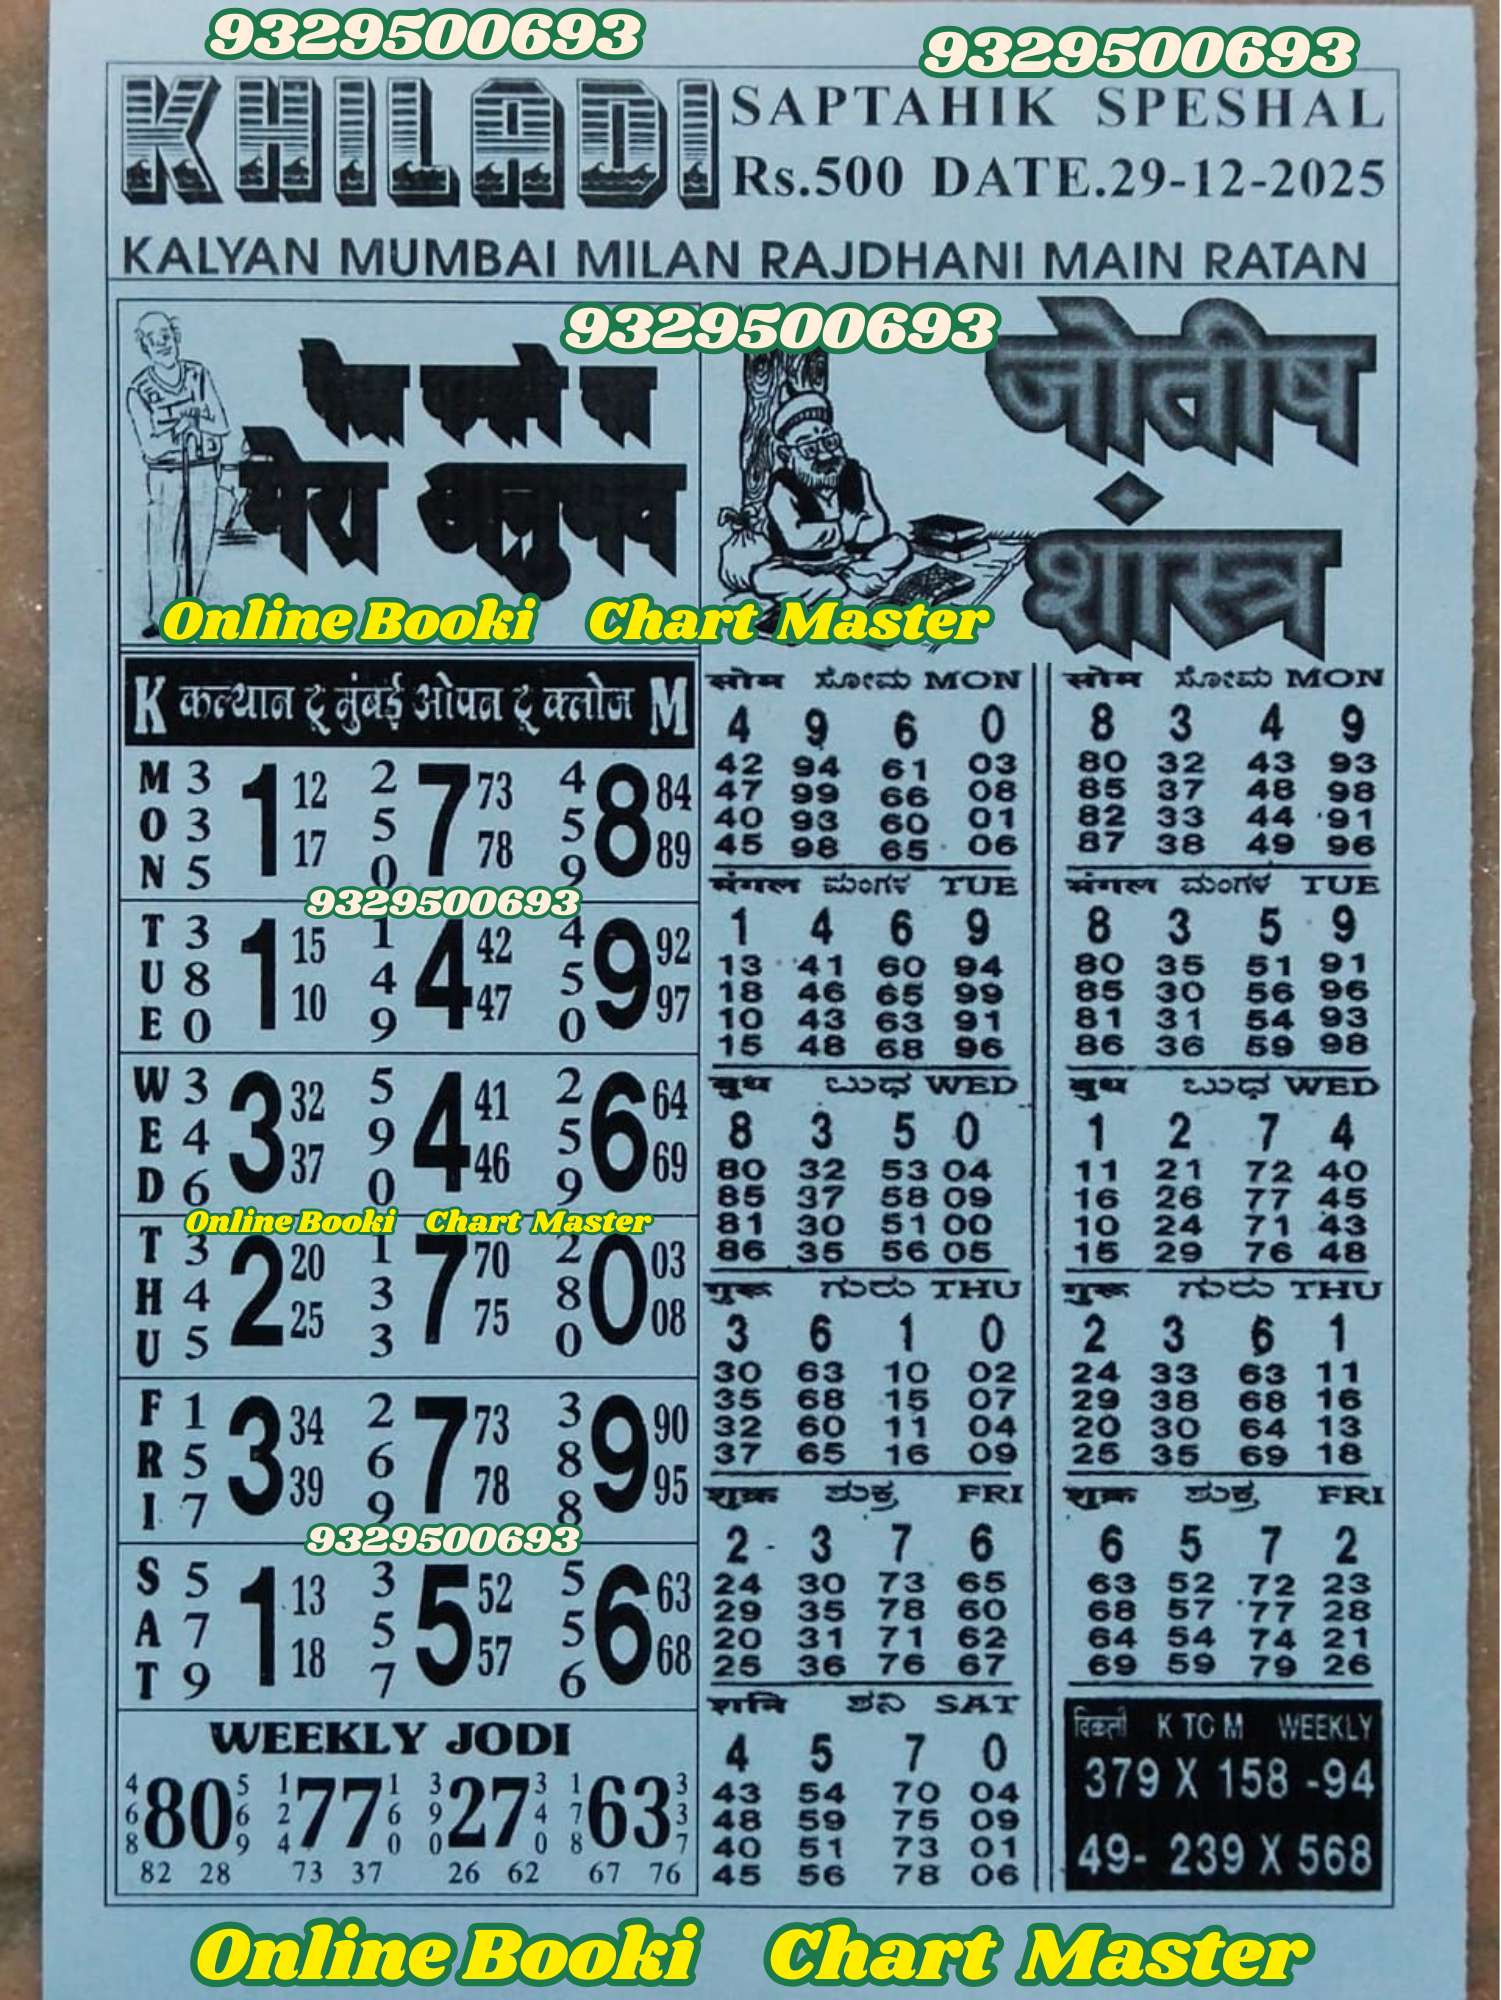 9329500693 9329500693
KHILADI SAPTAHIK SPESHAL
Rs.500 DATE.29-12-2025
KALYAN MUMBAI MILAN RAJDHANI MAIN RATAN
9329500693
मेरा अनुभव
जोतीष
शास्त्र
Online Booki Chart Master
K कल्यान टू मुंबई ओपन टू क्लोज M
MON 335 1 12 17 250 7 73 78 459 8 84 89
9329500693
TUE 380 1 15 10 149 4 42 47 450 9 92 97
WED 346 3 32 37 590 4 41 46 259 6 64 69
Online Booki Chart Master
THU 345 2 20 25 133 7 70 75 280 0 03 08
FRI 157 3 34 39 269 7 73 78 388 9 90 95
9329500693
SAT 579 1 13 18 357 5 52 57 556 6 63 68
WEEKLY JODI
468 80 569 124 77 160 390 27 340 178 63 337
82 28 73 37 26 62 67 76
सोम ಸೋಮ MON
4 9 6 0
42 94 61 03
47 99 66 08
40 93 60 01
45 98 65 06
मंगल ಮಂಗಳ TUE
1 4 6 9
13 41 60 94
18 46 65 99
10 43 63 91
15 48 68 96
बुध ಬುಧ WED
8 3 5 0
80 32 53 04
85 37 58 09
81 30 51 00
86 35 56 05
गुरू ಗುರು THU
3 6 1 0
30 63 10 02
35 68 15 07
32 60 11 04
37 65 16 09
शुक्र ಶುಕ್ರ FRI
2 3 7 6
24 30 73 65
29 35 78 60
20 31 71 62
25 36 76 67
शनि ಶನಿ SAT
4 5 7 0
43 54 70 04
48 59 75 09
40 51 73 01
45 56 78 06
सोम ಸೋಮ MON
8 3 4 9
80 32 43 93
85 37 48 98
82 33 44 91
87 38 49 96
मंगल ಮಂಗಳ TUE
8 3 5 9
80 35 51 91
85 30 56 96
81 31 54 93
86 36 59 98
बुध ಬುಧ WED
1 2 7 4
11 21 72 40
16 26 77 45
10 24 71 43
15 29 76 48
गुरू ಗುರು THU
2 3 6 1
24 33 63 11
29 38 68 16
20 30 64 13
25 35 69 18
शुक्र ಶುಕ್ರ FRI
6 5 7 2
63 52 72 23
68 57 77 28
64 54 74 21
69 59 79 26
विकली K TO M WEEKLY
379 X 158 -94
49- 239 X 568
Online Booki Chart Master